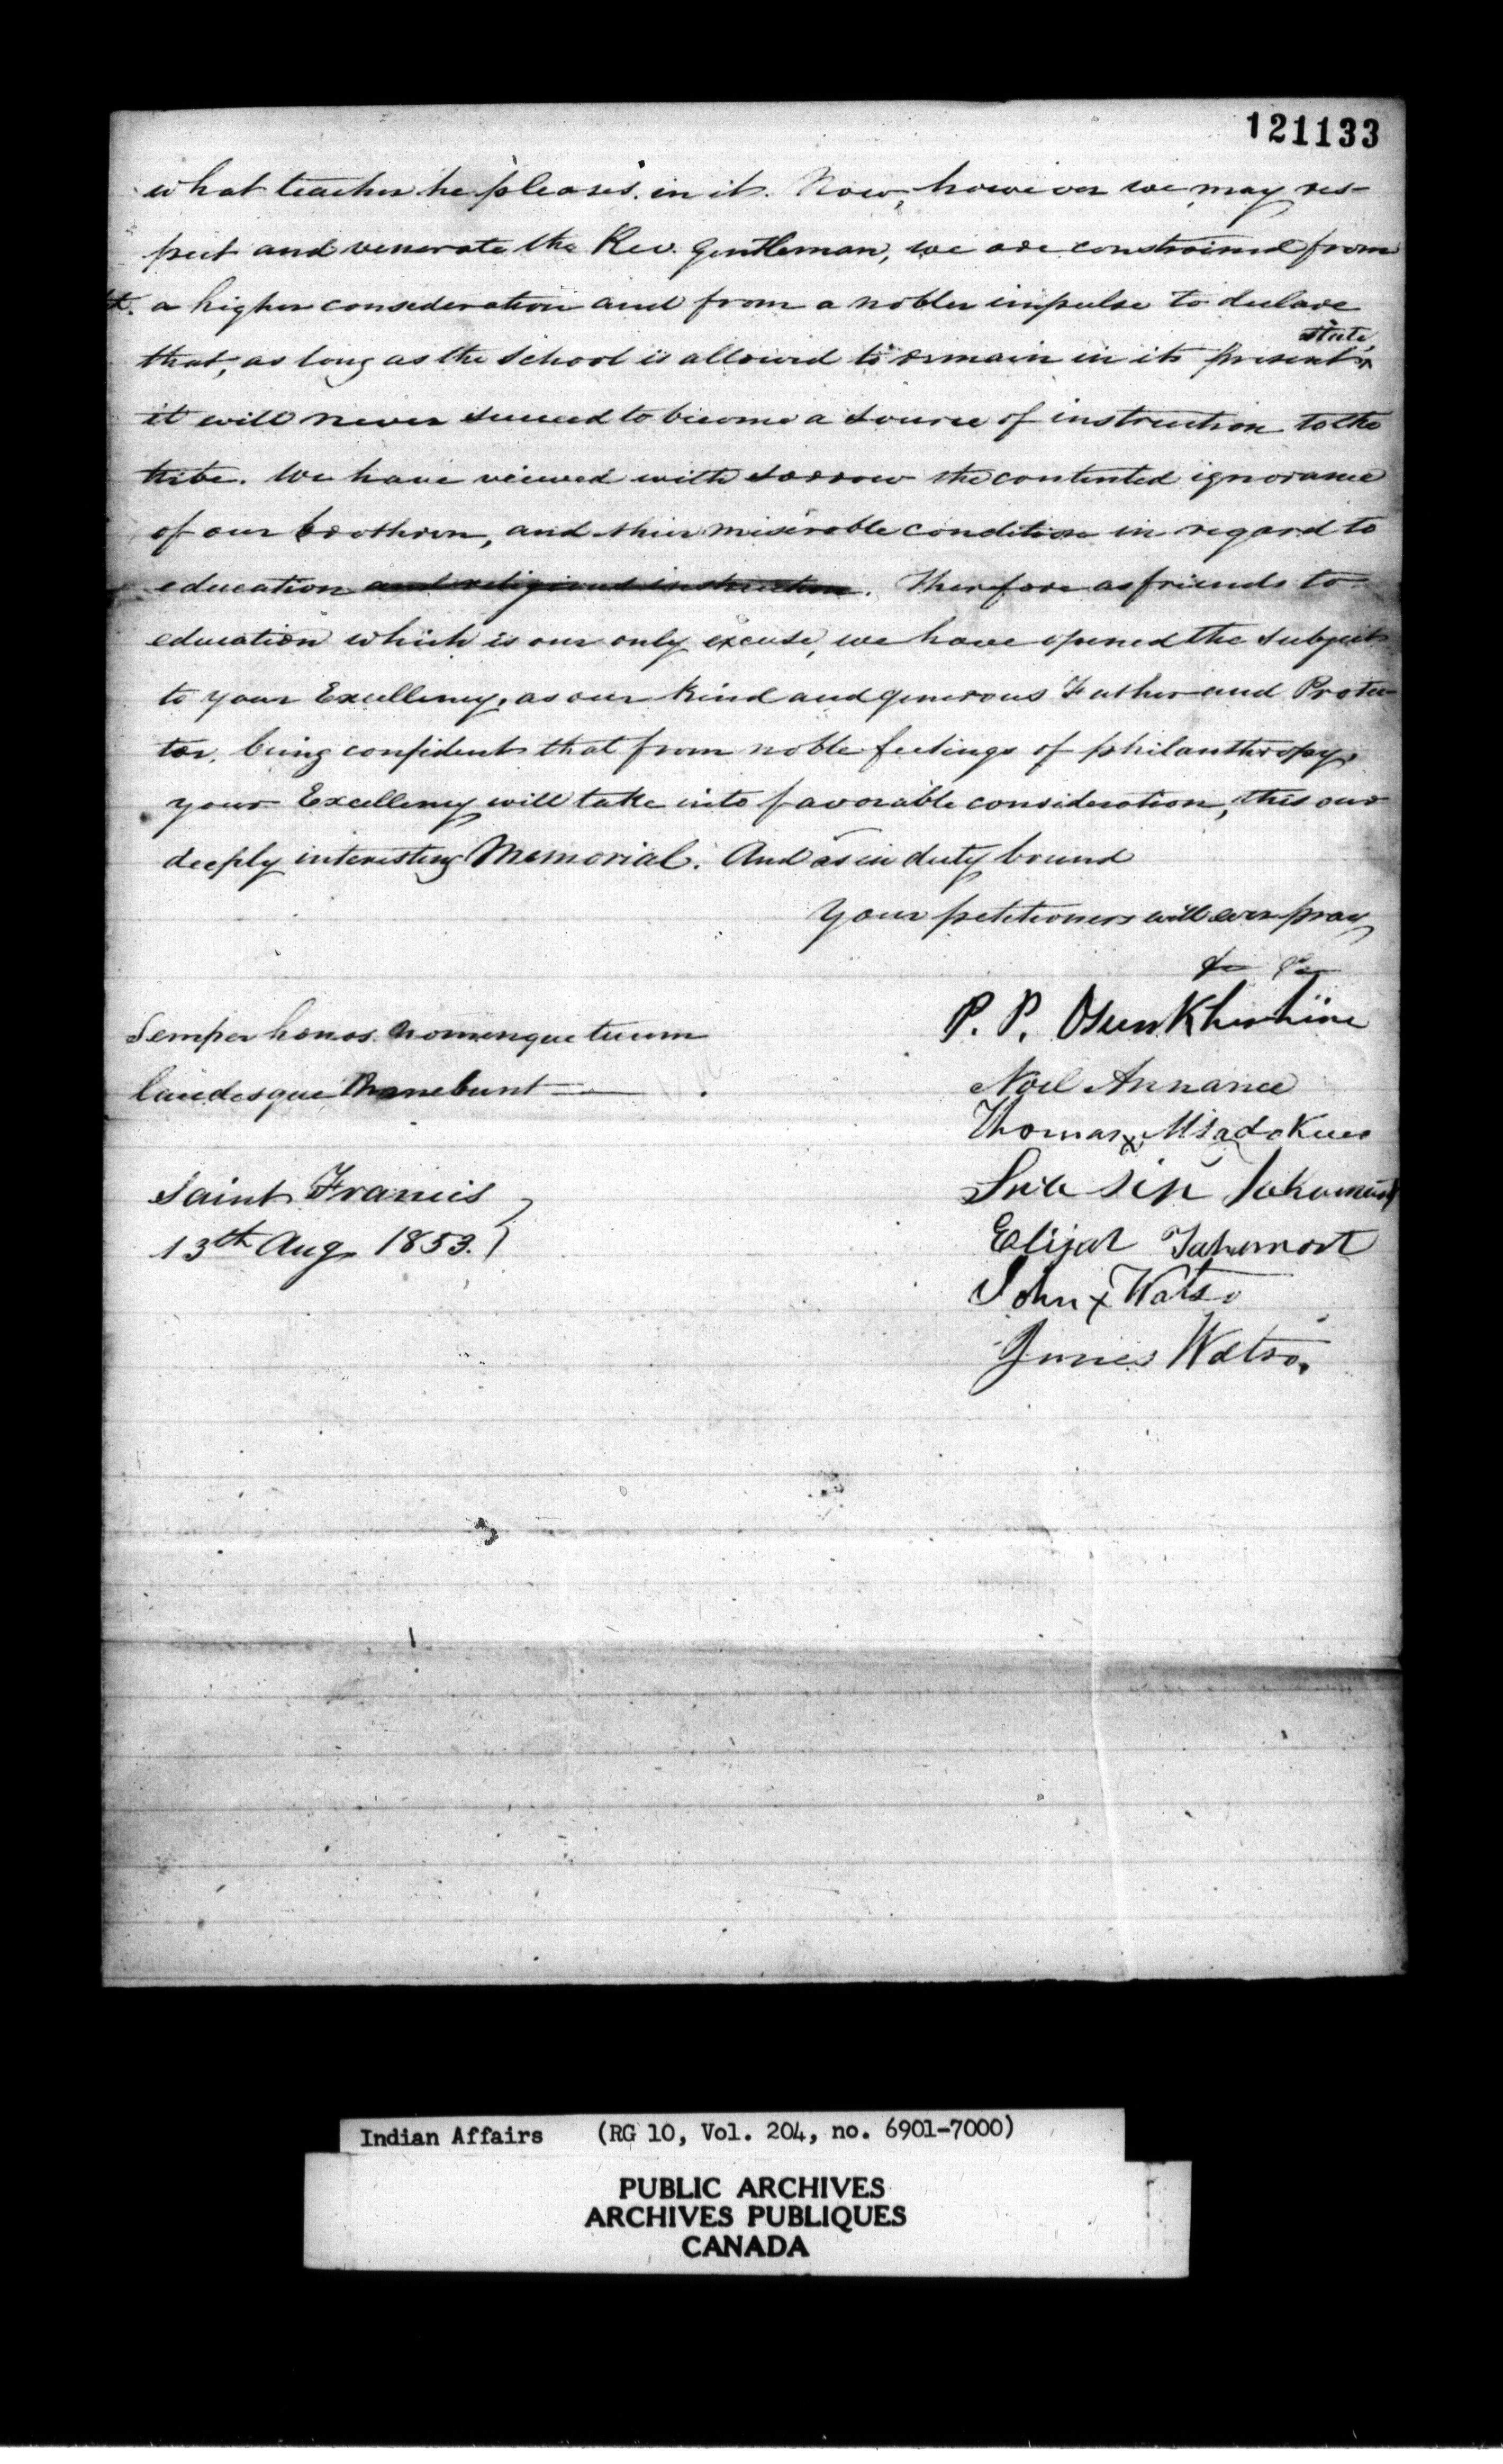 121133
what teacher he pleases in it. Now, however we may res-
pect and venerate the Rev. Gentleman, we are constrained from
a higher consideration and from a nobler impulse to declare
that, as long as the School is allowed to remain in its present state,
it will never succeed to become a source of instruction to the
tribe. We have viewed with sorrow the contented ignorance
of our brothren, and their miserable condition in regard to
education and religious instruction. Therefore as friends to
education which is our only excuse, we have opened the subject
to your Excellency, as our kind and generous Father and Protec-
tor, being confident that from noble feelings of philanthropy,
your Excellency will take into favorable consideration, this our
deeply interesting Memorial. And as in duty bound
Your petitioners will ever pray
&c &c
Semper honos nomenque tuum
laudesque manebunt
P. P. Osunkhirhine
Noel Annance
Thomas x Msadokues
Elijah Tahamont
John x Watso
James Watso.
Saint Francis
13th Aug 1853.
Indian Affairs (RG 10, Vol. 204, no. 6901-7000)
PUBLIC ARCHIVES
ARCHIVES PUBLIQUES
CANADA